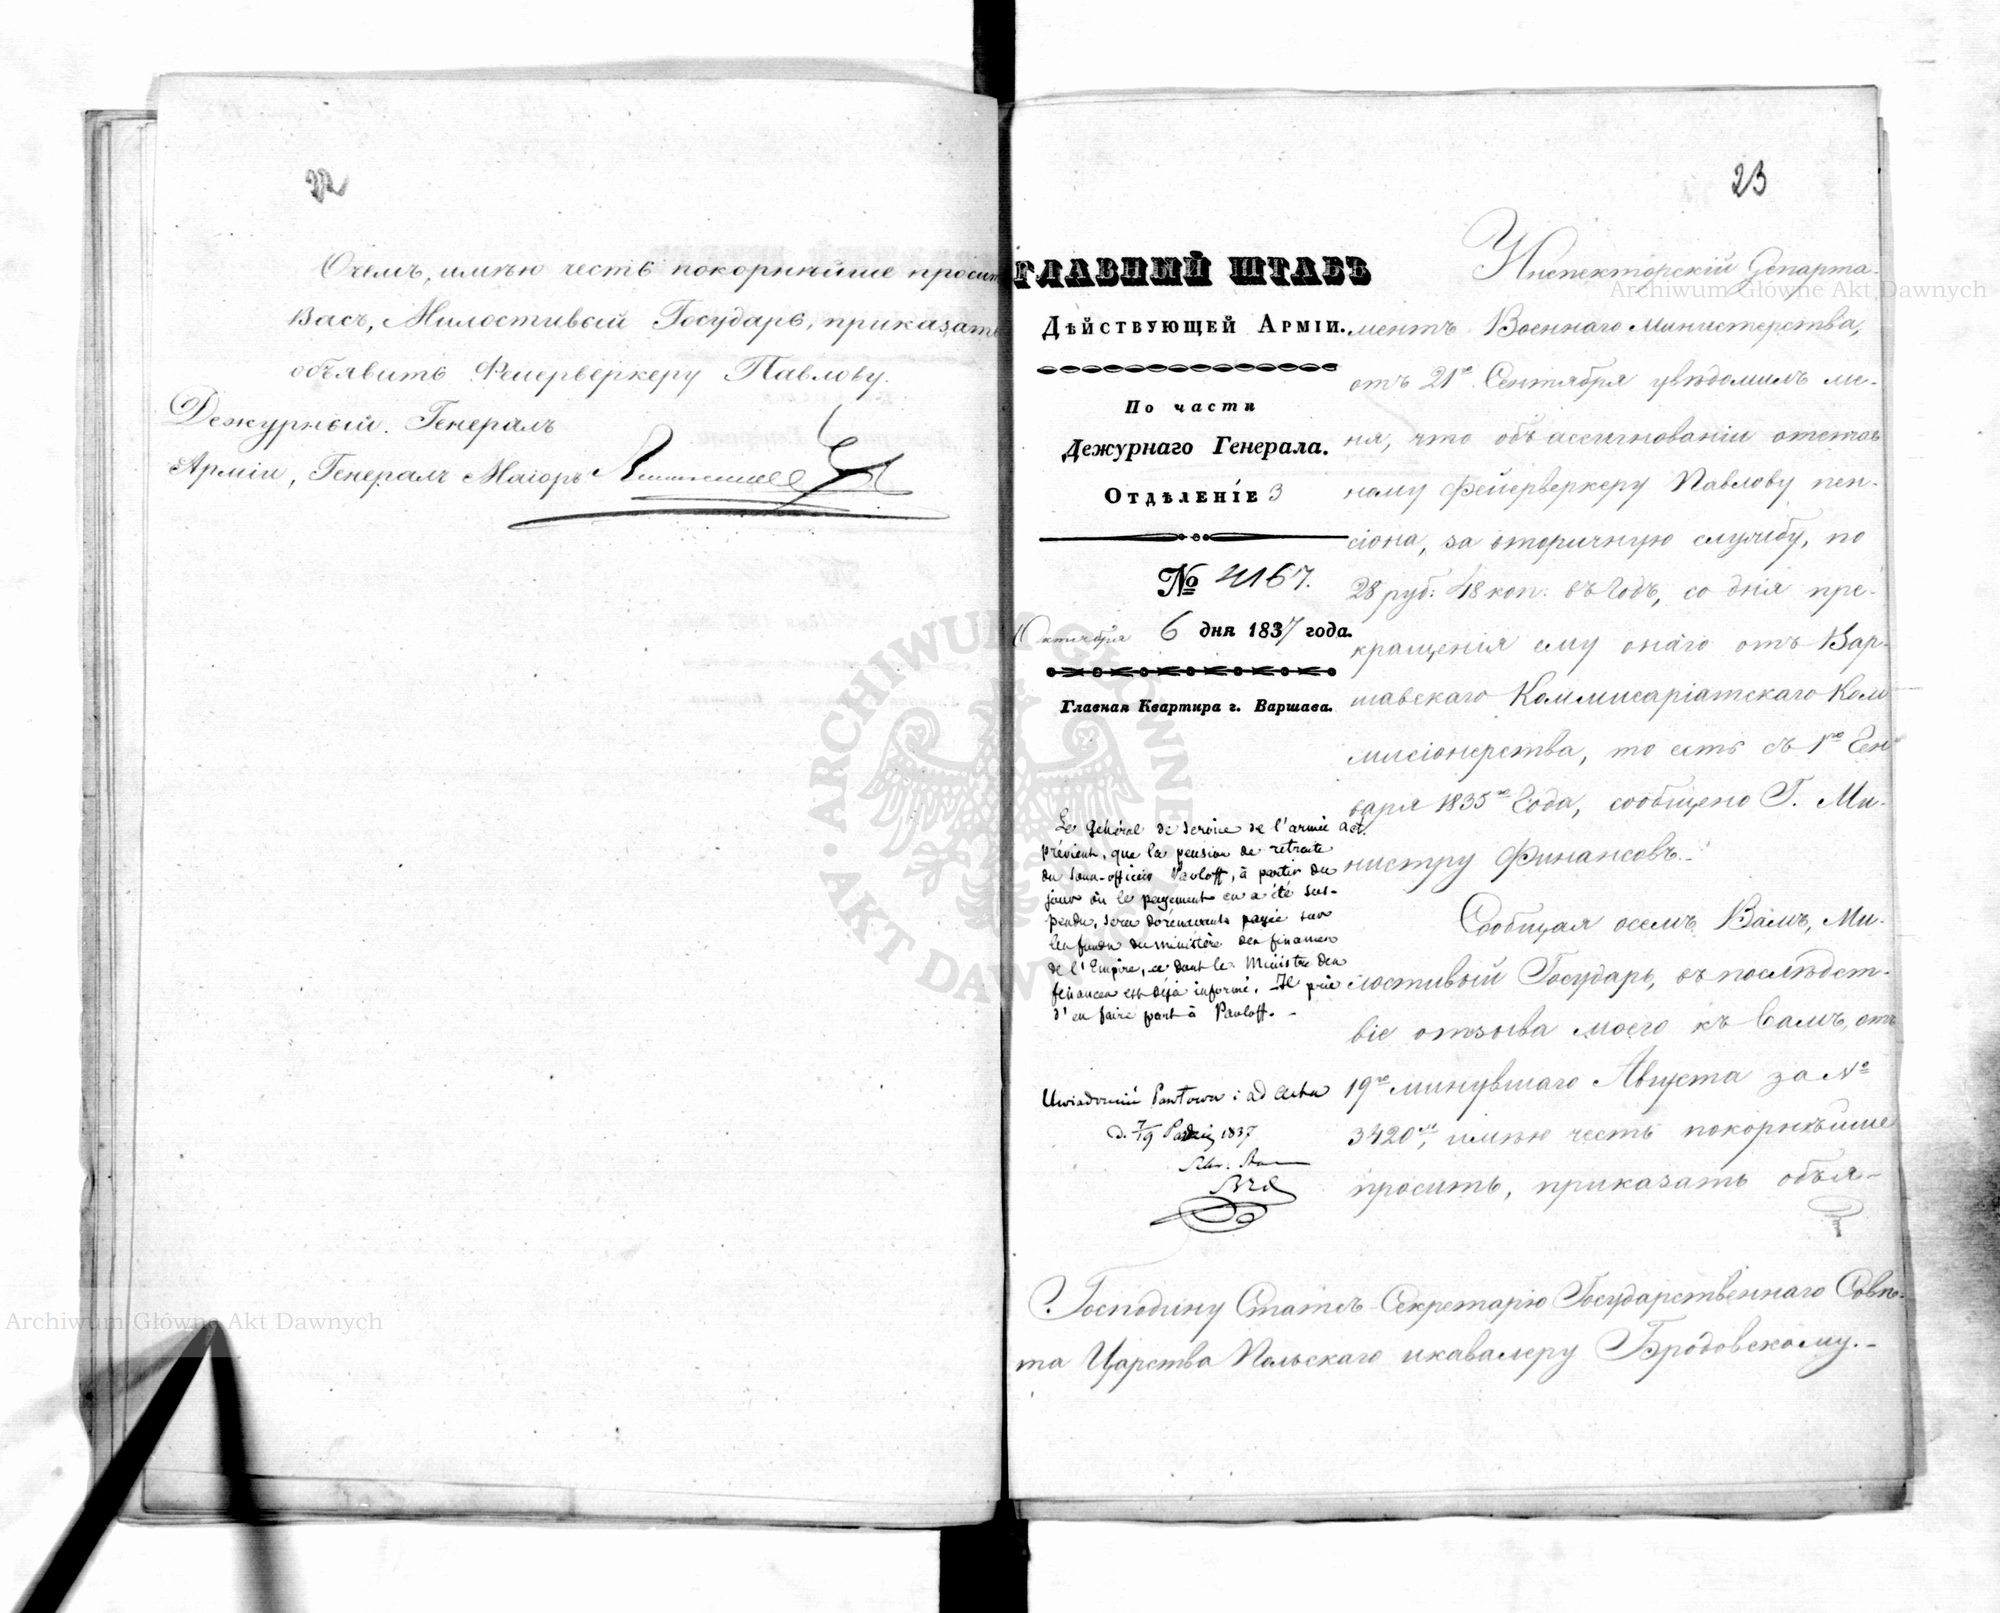 22
Очемъ, имѣю честь покорнѣйше просить
Васъ, Милостивый Государь, приказать
объявить Фейерверкеру Павлову.
Дежурный Генералъ
Арміи, Генералъ Маіоръ
23
ГЛАВНЫЙ ШТАБЪ
ДѢЙСТВУЮЩЕЙ АРМІИ.
По части
Дежурнаго Генерала.
ОТДѢЛЕНІЕ 3
№ 4167.
Октября 6 дня 1837 года.
Главная Квартира г. Варшава.
Инспекторскій Департа-
ментъ Военнаго Министерства,
отъ 21го Сентября увѣдомилъ ме-
ня, что объ ассигнованіи отстав
ному Фейерверкеру Павлову пен-
сіона, за вторичную службу, по
28 руб: 48 коп: въ годъ, со дня пре-
кращенія ему онаго отъ Вар-
шавскаго Коммисаріатскаго Ком
мисіонерства, то есть съ 1го Ген
варя 1835го года, сообщено Г. Ми-
нистру Финансовъ.-
Сообщая о семъ Вамъ, Ми-
лостивый Государь, въ послѣдст-
віе отзыва моего къ Вамъ, отъ
19го минувшаго Августа за №
3420м, имѣю честь покорнѣйше
просить, приказать объя-
Le Général de service de l'armée act.
prévient, que la pension de retraite
du sous-officier Pavloff, à partir du
jour où le payement en a été sus-
pendu, sera dorénavant payée sur
les fonds du ministère des finances
de l'Empire, ce dont le Ministre des
finances est déjà informé. Il prie
d'en faire part à Pavloff. -
Uwiadomić Pawłowa i ad acta
d. 7/19 Paźdz 1837
Господину Статсъ-Секретарю Государственнаго Совѣ-
та Царства Польскаго и кавалеру Бродовскому.-
ARCHIWUM GŁÓWNE AKT DAWNYCH
Archiwum Główne Akt Dawnych
Archiwum Główne Akt Dawnych